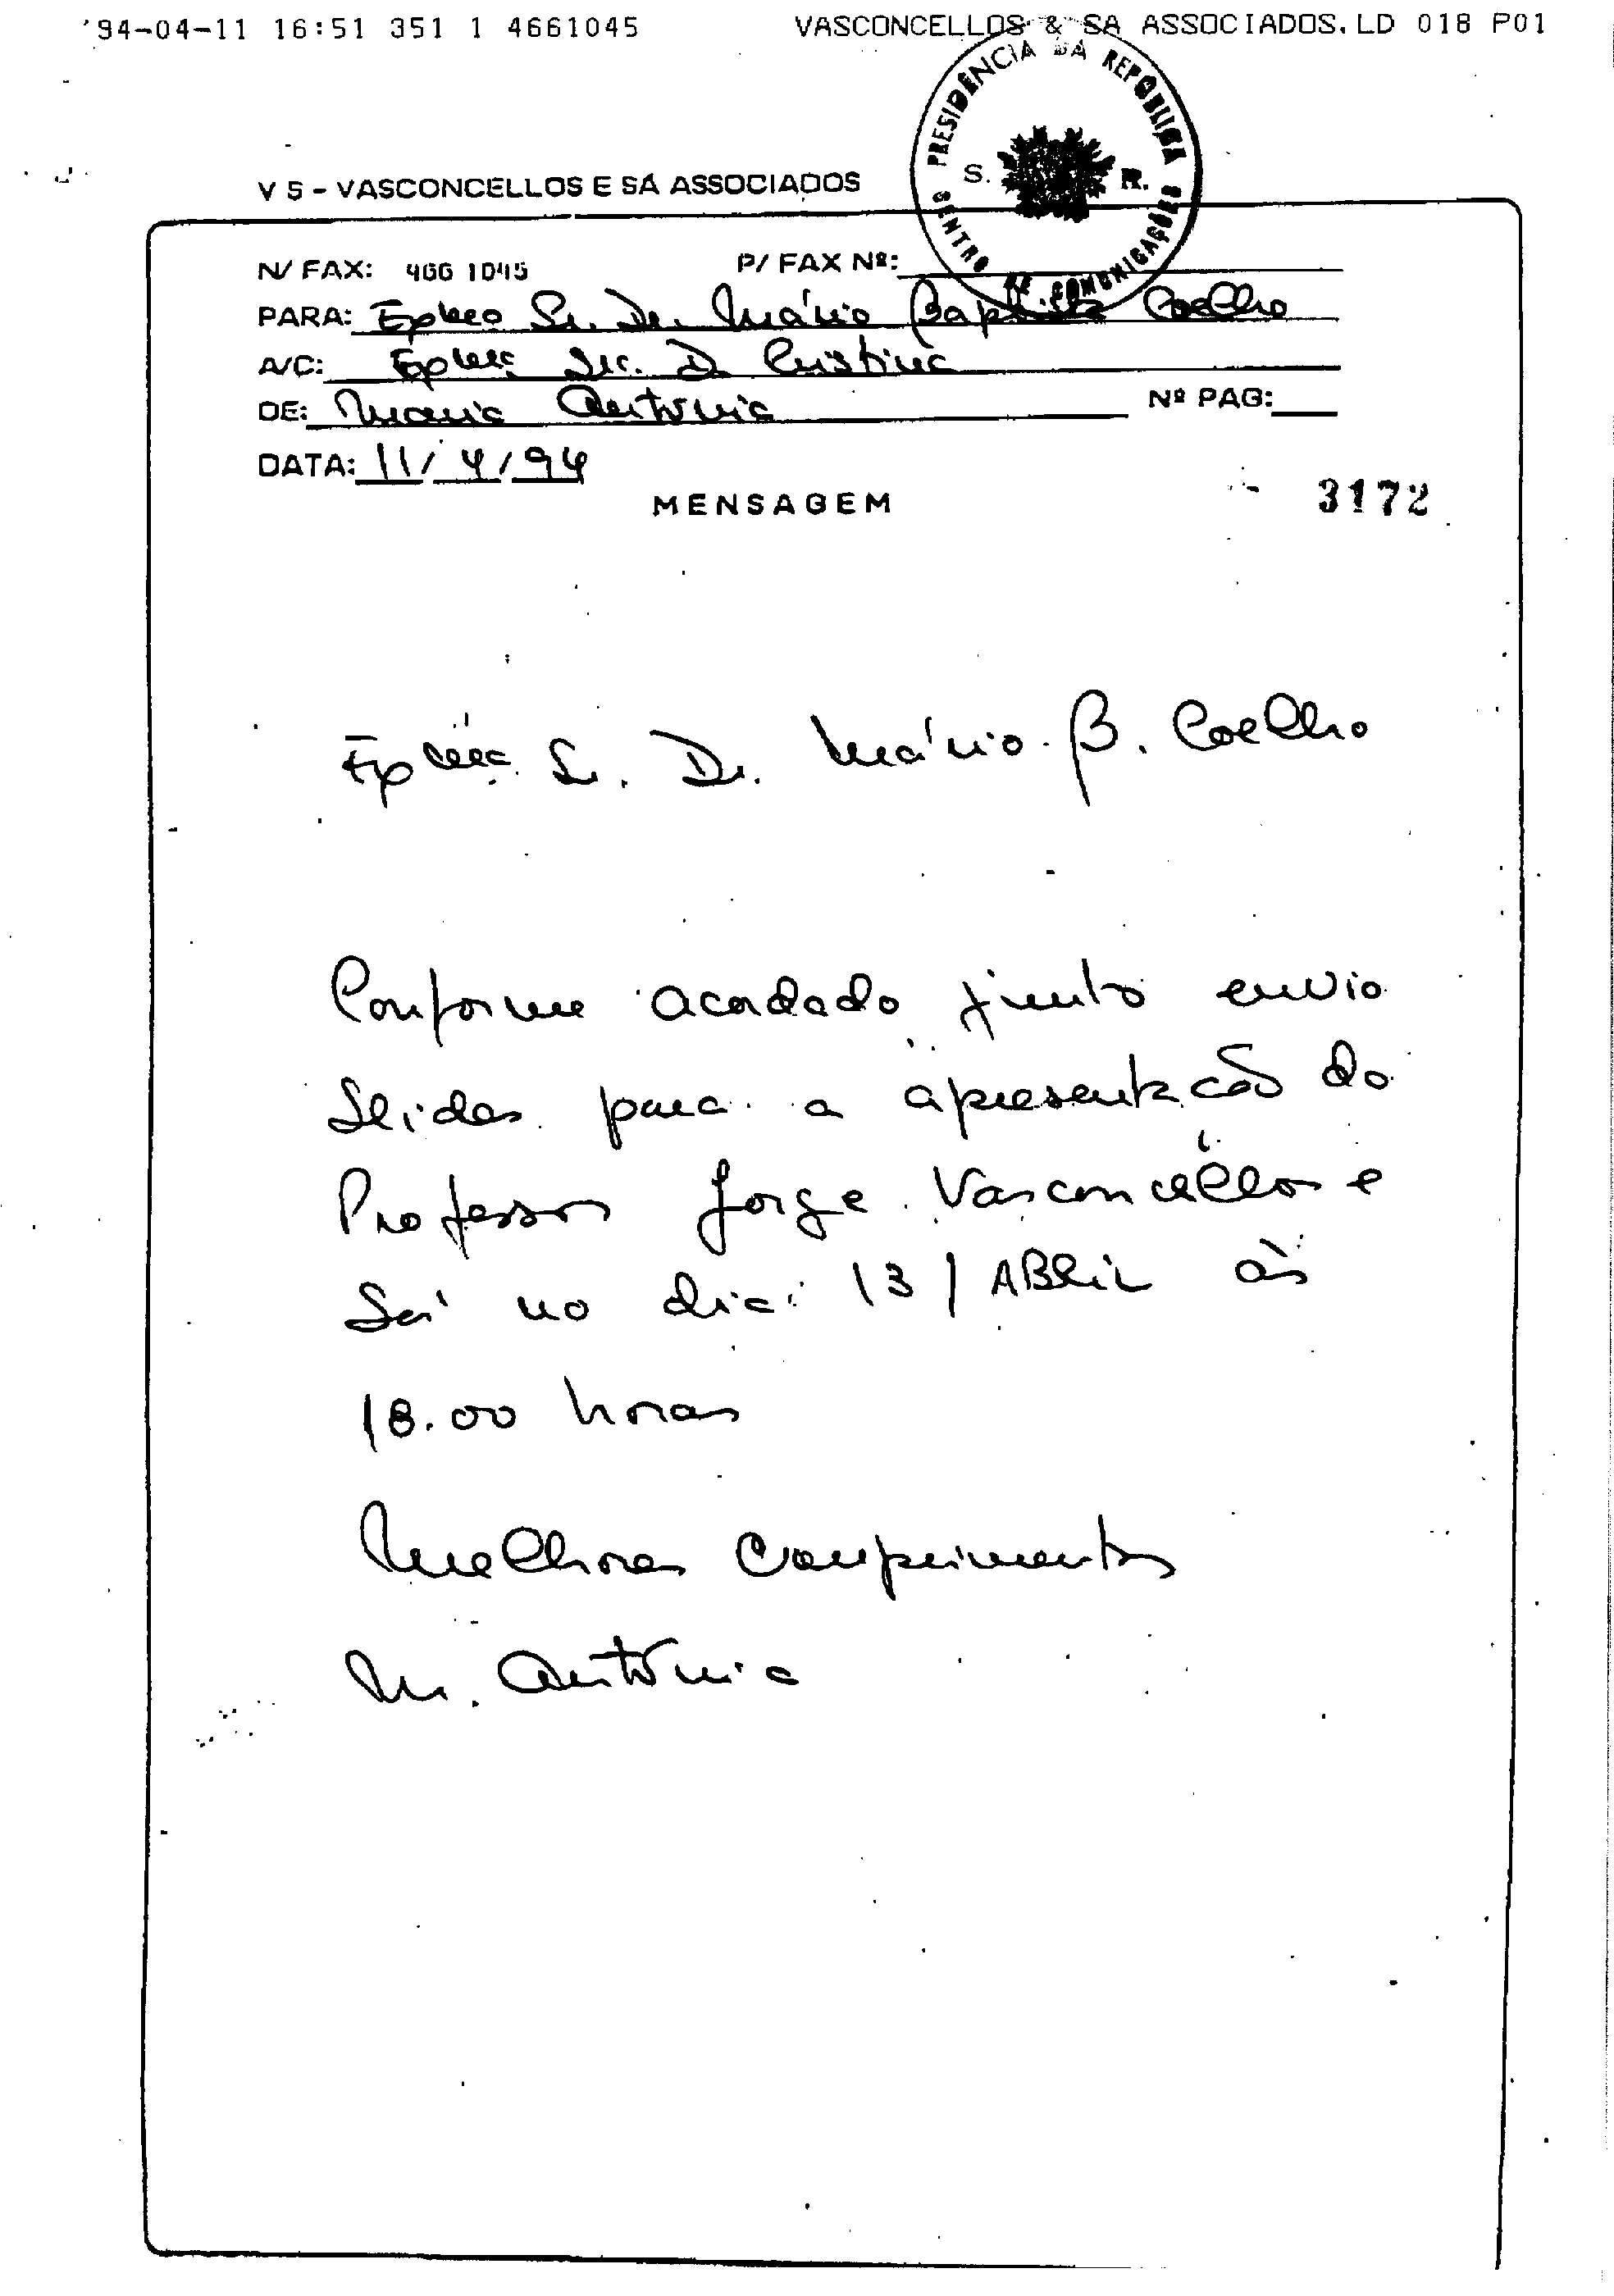 '94-04-11 16:51 351 1 4661045 VASCONCELLOS & SA ASSOCIADOS.LD 018 P01
PRESIDÊNCIA DA REPÚBLICA
S. R.
CENTRO DE COMUNICAÇÕES
V S - VASCONCELLOS E SÁ ASSOCIADOS
N/ FAX: 466 1045 P/ FAX Nº:
PARA: Sr. Dr. Mário Baptista Coelho
A/C: D. Cristina
DE: Maria Antónia Nº PAG:
DATA: 11/4/94
MENSAGEM
3172
Sr. Dr. Mário B. Coelho
Conforme acordado, junto envio
Slides para a apresentação do
Professor Jorge Vasconcellos e
Sá no dia 13/ABRIL às
18.00 horas
Melhores Cumprimentos
M. Antónia